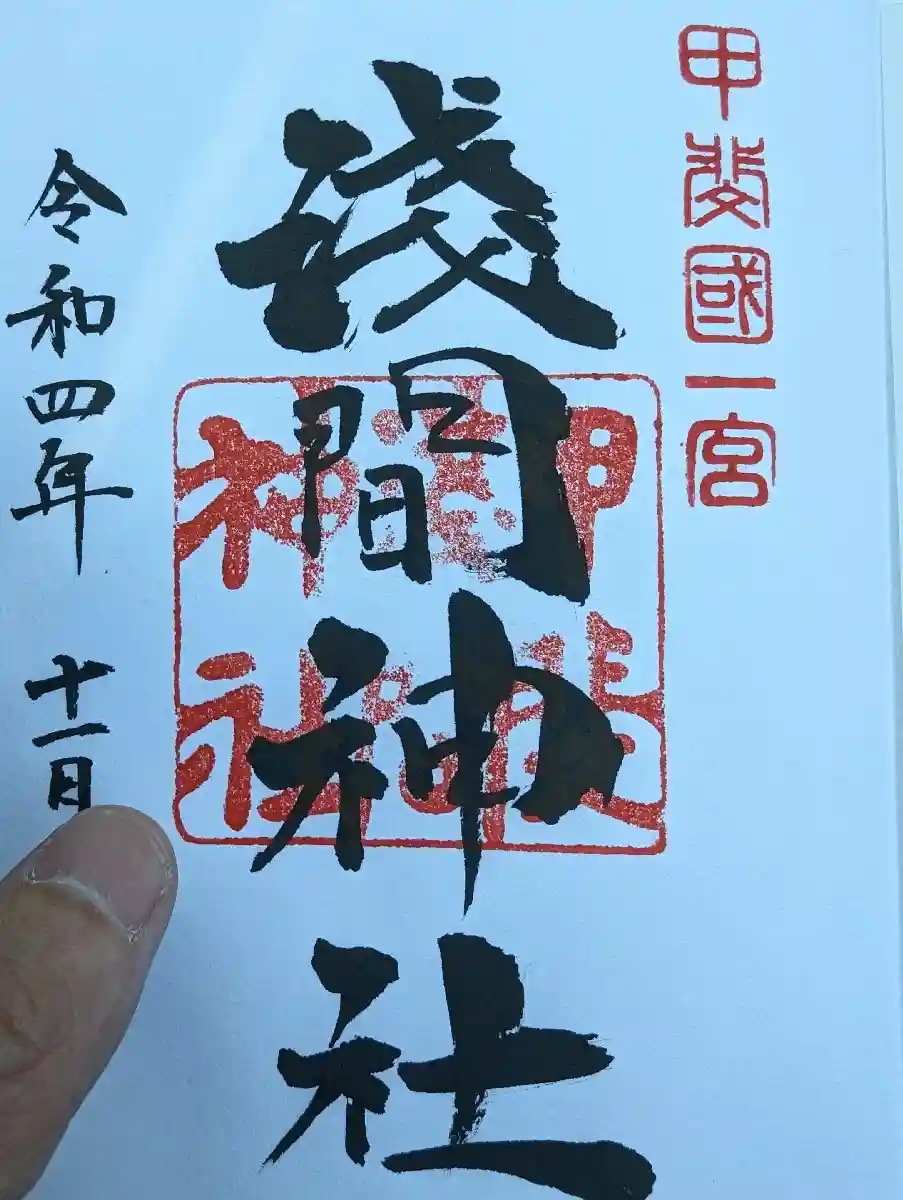 甲斐國一宮
淺間神社
甲斐
神社
令和四年 十一日